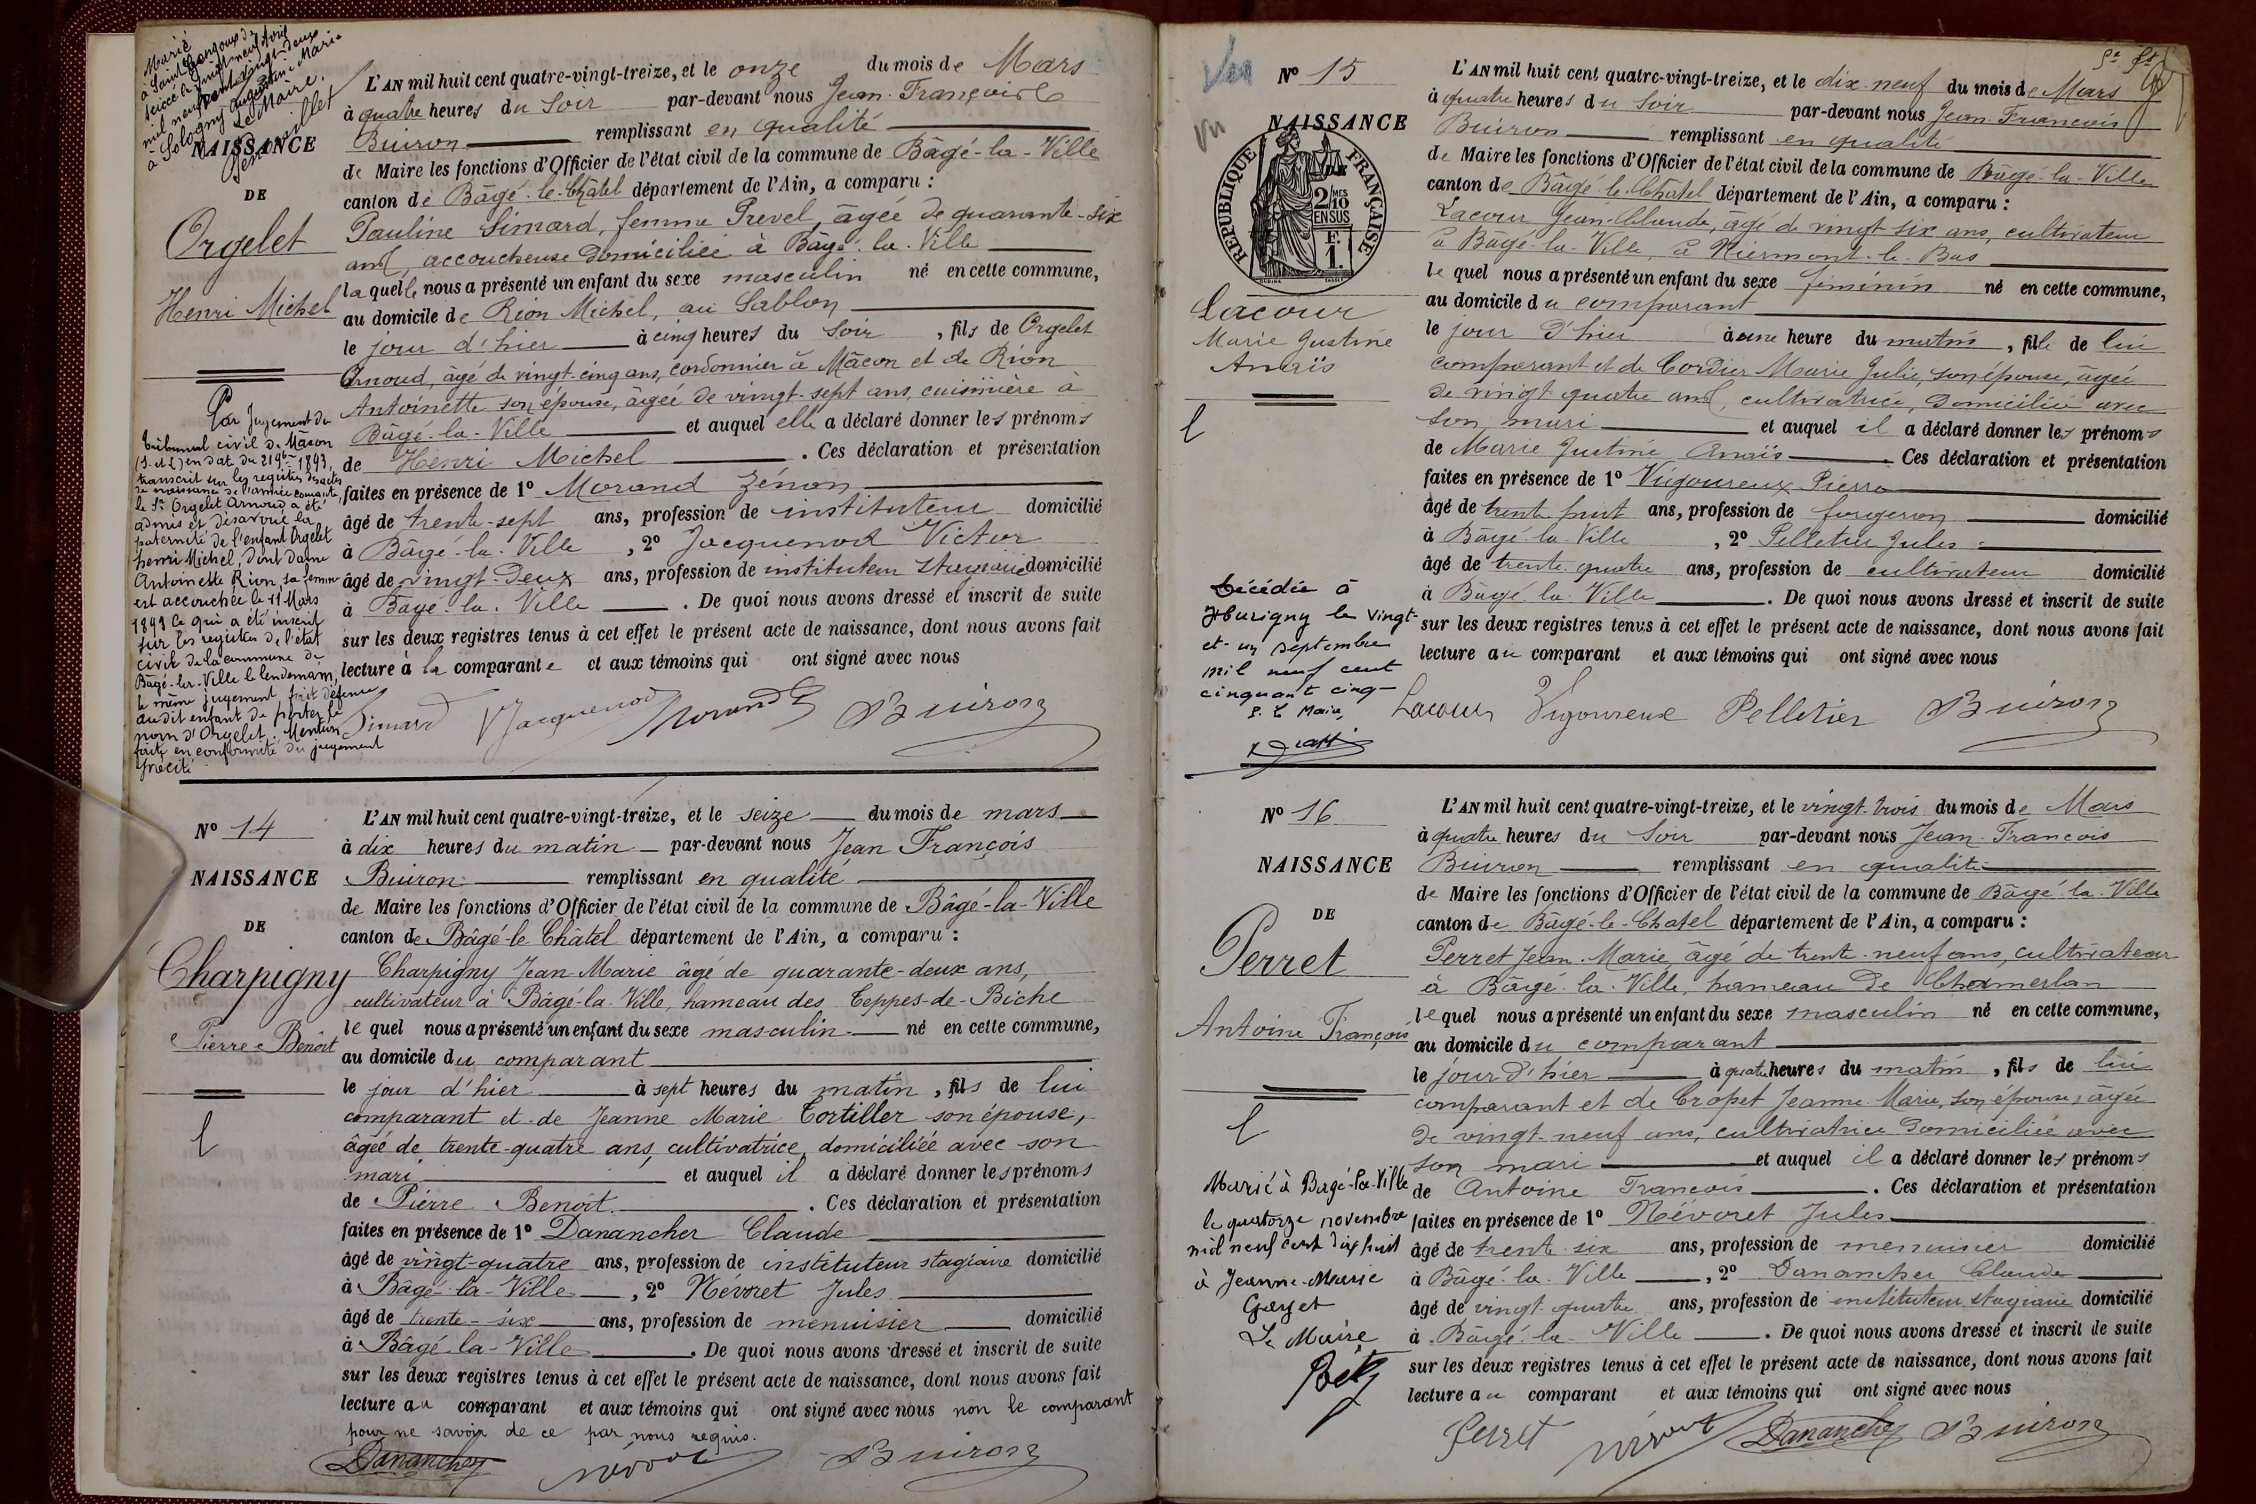 Marié
à Saint Gengoux de
Scissé le vingt neuf Avril
mil neuf cent vingt deux
à Sologny Augustine Marie
Le Maire.
NAISSANCE
DE
Orgelet
Henri Michel
Par Jugement du
tribunal civil de Mâcon
(S. et L) en date du 21 9bre 1893,
transcrit sur les registres des actes
de naissance de l'année courante,
le Sr Orgelet Arnoud a été
admis et désavoué la
paternité de l'enfant Orgelet
henri Michel, dont dame
Antoinette Rion, sa femme
est accouchée le 11 Mars
1893 Ce qui a été inscrit
sur les registres de l'état
civil de la commune de
Bâgé-la-Ville le lendemain,
le même jugement fait défense
audit enfant de porter le
nom d'Orgelet. Mention
faite en conformité du jugement
précité
L'AN mil huit cent quatre-vingt-treize, et le onze du mois de Mars
à quatre heures du Soir par-devant nous Jean-François
Buiron remplissant en qualité
de Maire les fonctions d'Officier de l'état civil de la commune de Bâgé-la-Ville
canton de Bâgé-le-Châtel département de l'Ain, a comparu :
Pauline Simard, femme Prevel, âgée de quarante-six
ans, accoucheuse domiciliée à Bâgé-la-Ville
laquelle nous a présenté un enfant du sexe masculin né en cette commune,
au domicile de Rion Michel, au Sablon
le jour d'hier à cinq heures du Soir, fils de Orgelet
Arnoud, âgé de vingt-cinq ans, cordonnier à Mâcon et de Rion
Antoinette son épouse, âgée de vingt-sept ans, cuisinière à
Bâgé-la-Ville et auquel elle a déclaré donner les prénoms
de Henri Michel. Ces déclaration et présentation
faites en présence de 1° Morand Zénon
âgé de trente-sept ans, profession de instituteur domicilié
à Bâgé-la-Ville, 2° Jacquenod Victor
âgé de vingt-deux ans, profession de instituteur stagiaire domicilié
à Bâgé-la-Ville. De quoi nous avons dressé et inscrit de suite
sur les deux registres tenus à cet effet le présent acte de naissance, dont nous avons fait
lecture à la comparante et aux témoins qui ont signé avec nous
Simard V Jacquenod Morand Z Buiron
N° 14
NAISSANCE
DE
Charpigny
Pierre Benoit
L'AN mil huit cent quatre-vingt-treize, et le seize du mois de mars
à dix heures du matin par-devant nous Jean François
Buiron remplissant en qualité
de Maire les fonctions d'Officier de l'état civil de la commune de Bâgé-la-Ville
canton de Bâgé-le-Châtel département de l'Ain, a comparu :
Charpigny Jean-Marie âgé de quarante-deux ans,
cultivateur à Bâgé-la-Ville, hameau des Teppes-de-Biche
lequel nous a présenté un enfant du sexe masculin né en cette commune,
au domicile du comparant
le jour d'hier à sept heures du matin, fils de lui
comparant et de Jeanne Marie Tortiller son épouse,
âgée de trente-quatre ans, cultivatrice, domiciliée avec son
mari et auquel il a déclaré donner les prénoms
de Pierre Benoit. Ces déclaration et présentation
faites en présence de 1° Danancher Claude
âgé de vingt-quatre ans, profession de instituteur stagiaire domicilié
à Bâgé-la-Ville, 2° Névoret Jules
âgé de trente-six ans, profession de menuisier domicilié
à Bâgé-la-Ville. De quoi nous avons dressé et inscrit de suite
sur les deux registres tenus à cet effet le présent acte de naissance, dont nous avons fait
lecture au comparant et aux témoins qui ont signé avec nous non le comparant
pour ne savoir de ce par nous requis.
Danancher Névoret Buiron
Vu
N° 15
NAISSANCE
REPUBLIQUE FRANÇAISE
2/10 MES
EN SUS
F.
1.
Lacour
Marie Justine
Anaïs
Décédée à
Hurigny le vingt-
et-un septembre
mil neuf cent
cinquante cinq-
P. le Maire,
L'AN mil huit cent quatre-vingt-treize, et le dix-neuf du mois de Mars
à quatre heures du Soir par-devant nous Jean-François
Buiron remplissant en qualité
de Maire les fonctions d'Officier de l'état civil de la commune de Bâgé-la-Ville
canton de Bâgé-le-Chatel département de l'Ain, a comparu :
Lacour Jean-Claude, âgé de vingt-six ans, cultivateur
à Bâgé-la-Ville, à Niermont-le-Bas
lequel nous a présenté un enfant du sexe féminin né en cette commune,
au domicile du comparant
le jour d'hier à une heure du matin, fille de lui
comparant et de Cordier Marie Julie, son épouse, âgée
de vingt quatre ans, cultivatrice, domiciliée avec
son mari et auquel il a déclaré donner les prénoms
de Marie Justine Anaïs. Ces déclaration et présentation
faites en présence de 1° Vigoureux Pierre
âgé de trente huit ans, profession de forgeron domicilié
à Bâgé-la-Ville, 2° Pelletier Jules
âgé de trente quatre ans, profession de cultivateur domicilié
à Bâgé-la-Ville. De quoi nous avons dressé et inscrit de suite
sur les deux registres tenus à cet effet le présent acte de naissance, dont nous avons fait
lecture au comparant et aux témoins qui ont signé avec nous
Lacour Vigoureux Pelletier Buiron
N° 16
NAISSANCE
DE
Perret
Antoine François
Marié à Bagé-la-Ville
le quatorze novembre
mil neuf cent dix huit
à Jeanne-Marie
Gayet
Le Maire
L'AN mil huit cent quatre-vingt-treize, et le vingt-trois du mois de Mars
à quatre heures du Soir par-devant nous Jean-François
Buiron remplissant en qualité
de Maire les fonctions d'Officier de l'état civil de la commune de Bâgé-la-Ville
canton de Bâgé-le-Chatel département de l'Ain, a comparu :
Perret Jean-Marie, âgé de trente-neuf ans, cultivateur
à Bâgé-la-Ville, hameau de Chamerlan
lequel nous a présenté un enfant du sexe masculin né en cette commune,
au domicile du comparant
le jour d'hier à quatre heures du matin, fils de lui
comparant et de Cropet Jeanne-Marie, son épouse, âgée
de vingt-neuf ans, cultivatrice domiciliée avec
son mari et auquel il a déclaré donner les prénoms
de Antoine François. Ces déclaration et présentation
faites en présence de 1° Névoret Jules
âgé de trente six ans, profession de menuisier domicilié
à Bâgé-la-Ville, 2° Danancher Claude
âgé de vingt-quatre ans, profession de instituteur stagiaire domicilié
à Bâgé-la-Ville. De quoi nous avons dressé et inscrit de suite
sur les deux registres tenus à cet effet le présent acte de naissance, dont nous avons fait
lecture au comparant et aux témoins qui ont signé avec nous
Perret Névoret Danancher Buiron